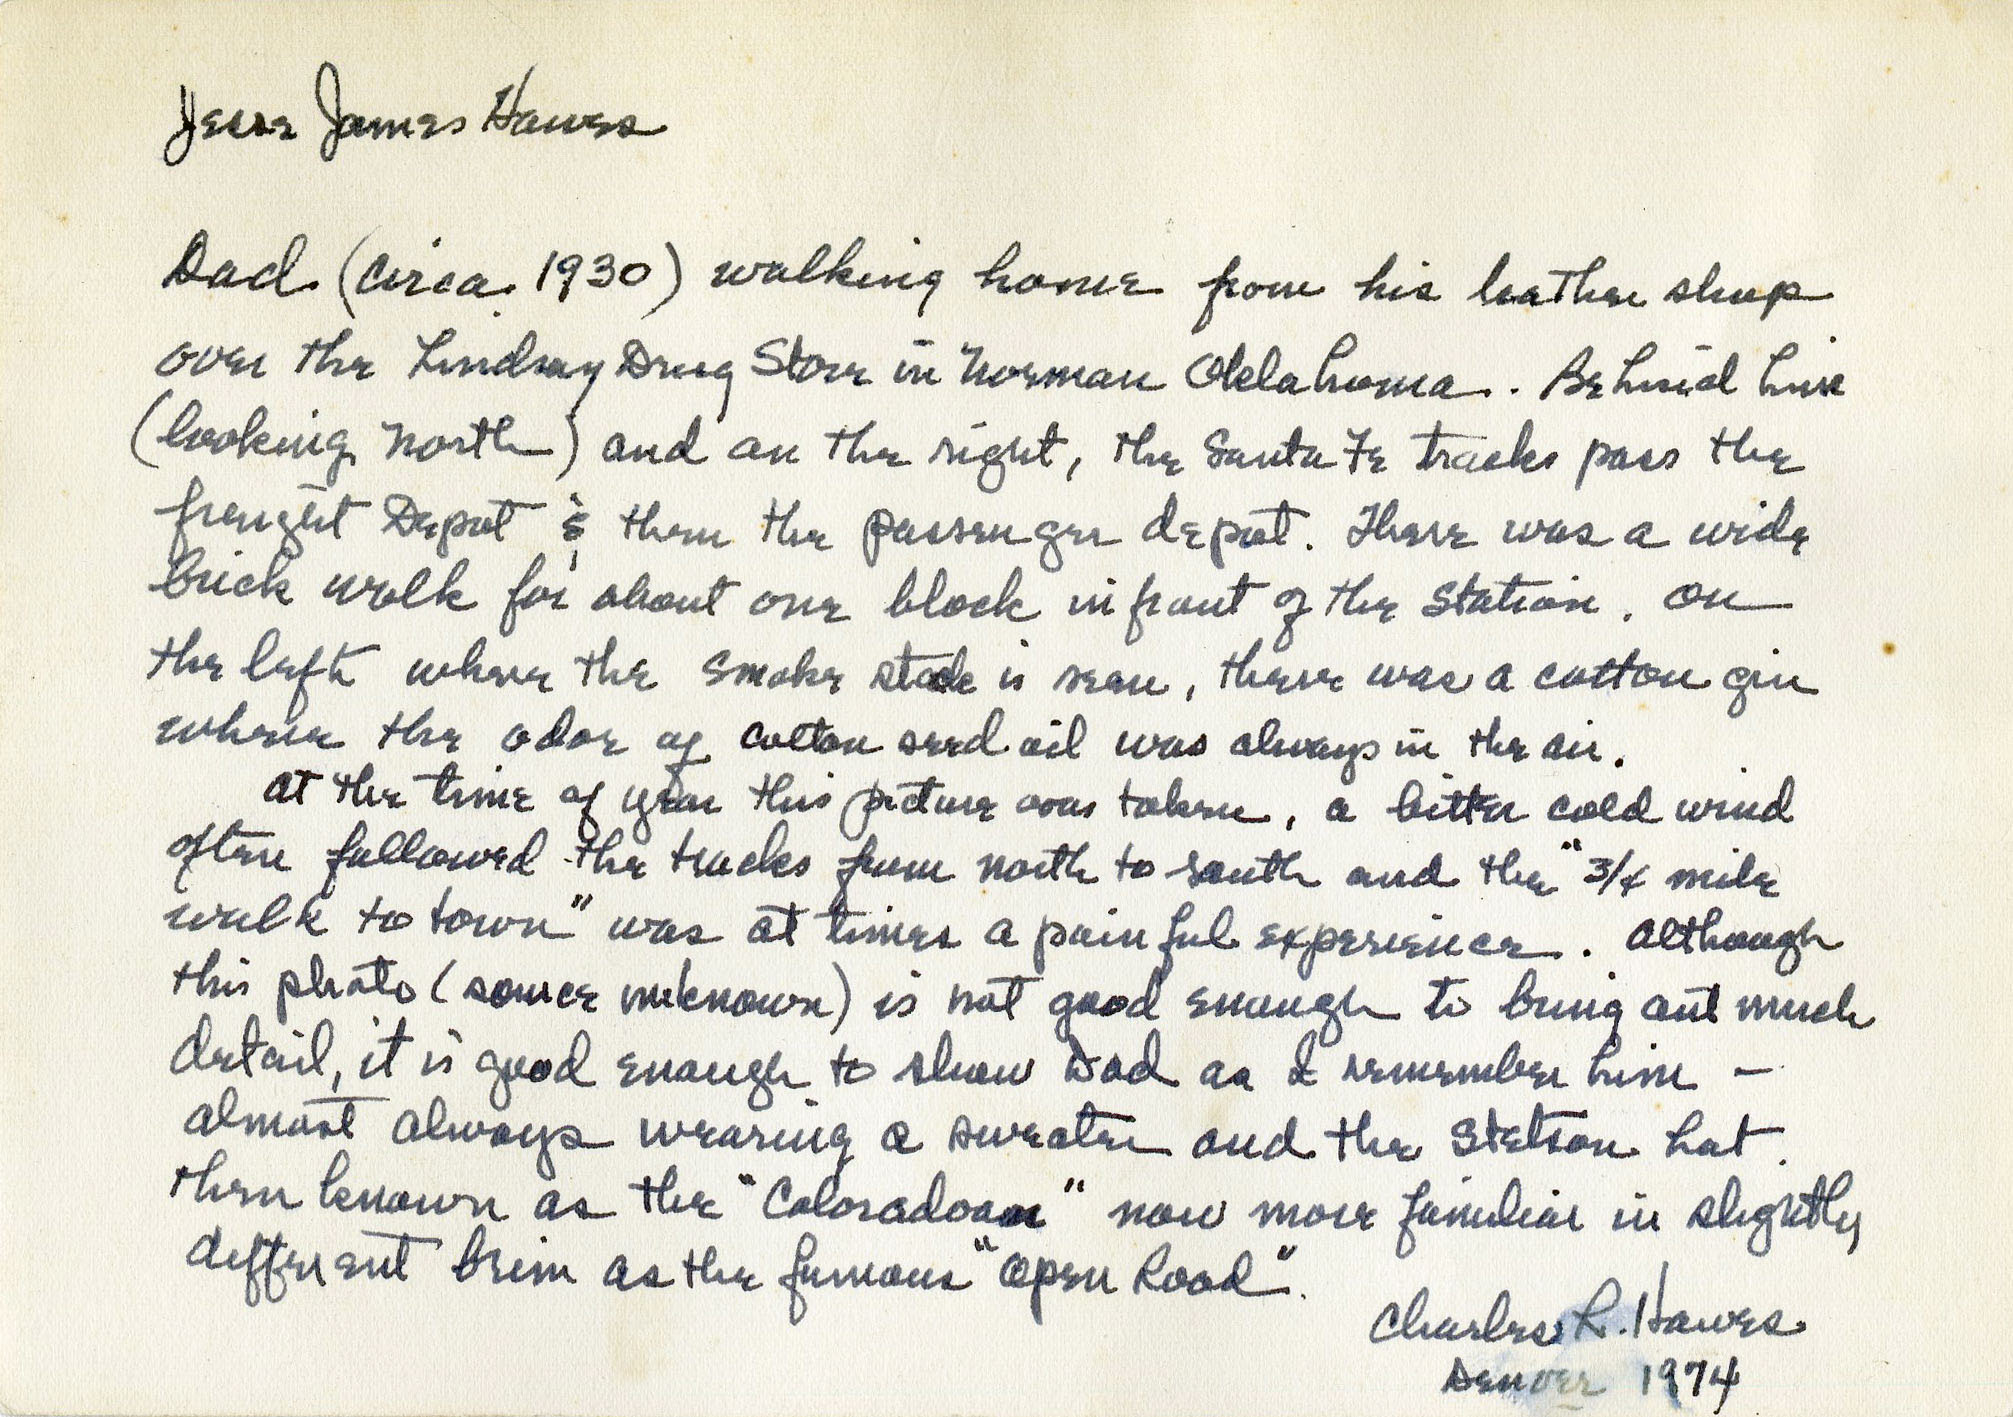 Jesse James Hawes
Dad (circa 1930) walking home from his leather shop
over the Lindsay Drug Store in Norman Oklahoma. Behind him
(looking North) and on the right, the Santa Fe tracks pass the
freight Depot & then the passenger depot. There was a wide
brick walk for about one block in front of the Station. On
the left where the smoke stack is seen, there was a cotton gin
where the odor of cotton seed oil was always in the air.
At the time of year this picture was taken, a bitter cold wind
often followed the tracks from north to south and the "3/4 mile
walk to town" was at times a painful experience. Although
this photo (source unknown) is not good enough to bring out much
detail, it is good enough to show Dad as I remember him -
almost always wearing a sweater and the Stetson hat
then known as the "Coloradoan" now more familiar in slightly
different brim as the famous "Open Road".
Charles R. Hawes
Denver 1974